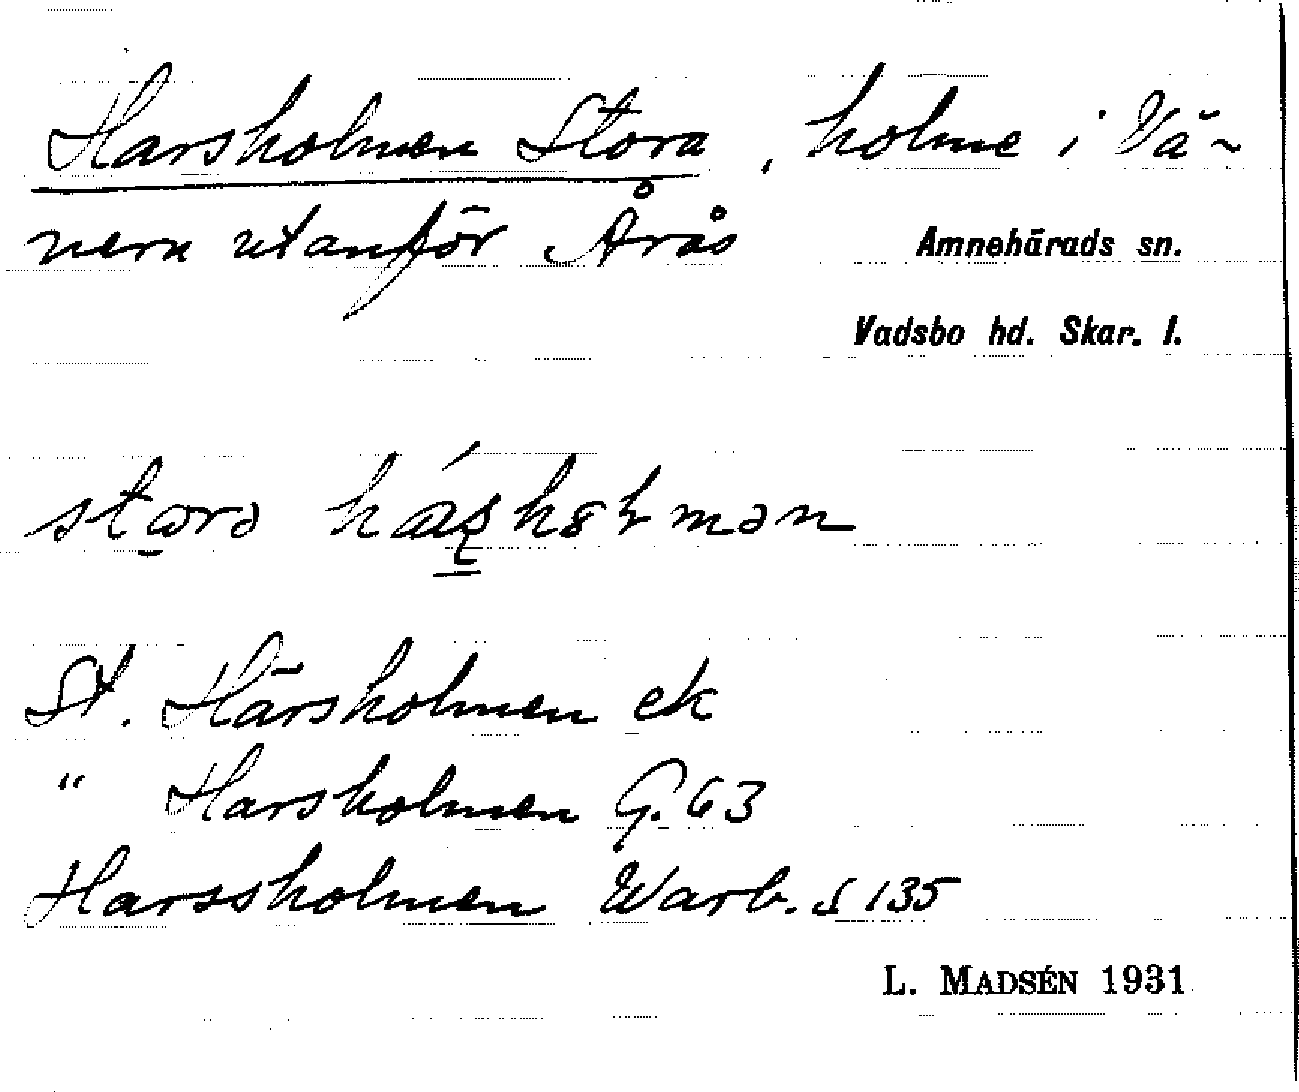 Harsholmen Stora, holme i Vä-
nern utanför Årås
Amnehärads sn.
Vadsbo hd. Skar. l.
St. Härsholmen ek
" Harsholmen G. 63
Harssholmen Warb. s 135
L. MADSÉN 1931